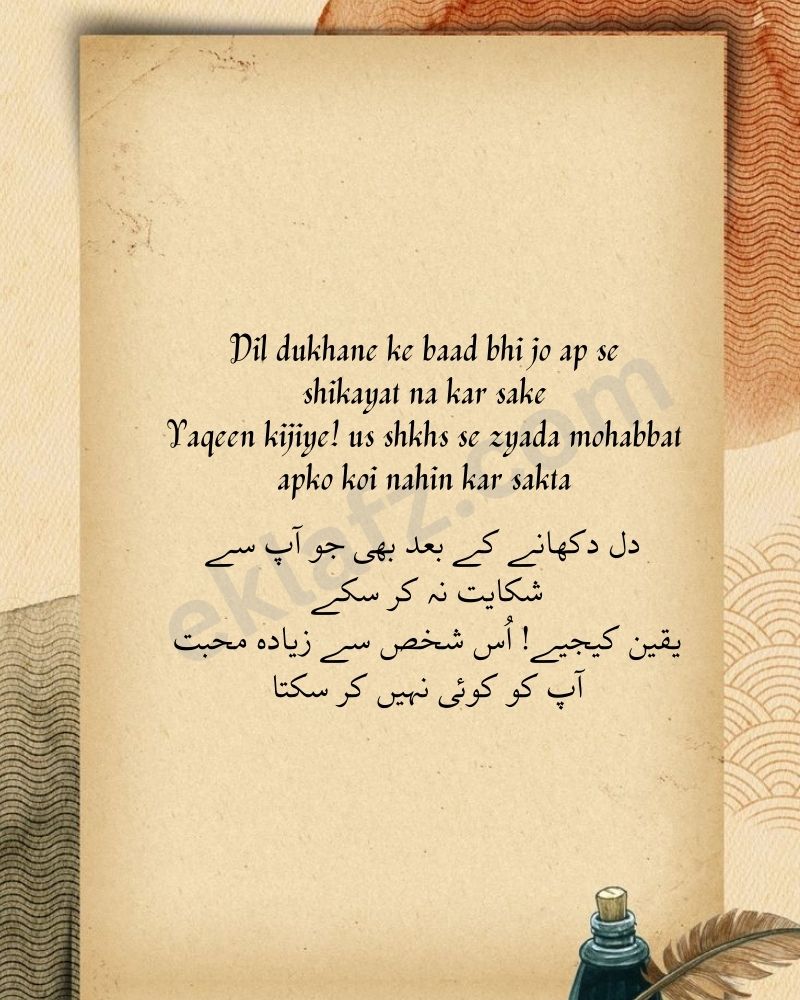 Dil dukhane ke baad bhi jo ap se
shikayat na kar sake
Yaqeen kijiye! us shkhs se zyada mohabbat
apko koi nahin kar sakta
دل دکھانے کے بعد بھی جو آپ سے
شکایت نہ کر سکے
یقین کیجیے! اُس شخص سے زیادہ محبت
آپ کو کوئی نہیں کر سکتا
eklafz.com